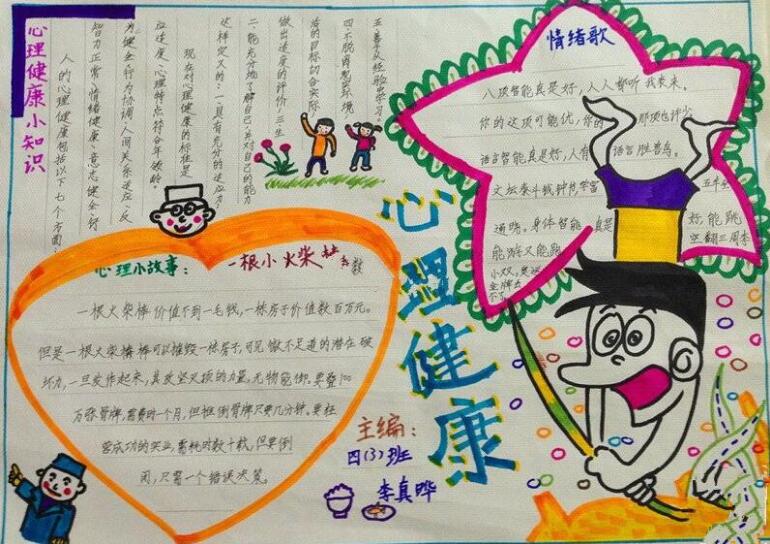 心理健康小知识
人的心理健康包括以下七个方面:
智力正常、情绪健康、意志健全、行
为健全、行为协调、人间关系适应、反
应适度、心理特点符合年龄。
现在对心理健康的标准是
这样定义的:一、具有充分的适应力;
二、能充分地了解自己,并对自己的能力
做出适度的评价;三、生
活的目标切合实际
四、不脱离现实环境;
五、善于从经验中学习。
情绪歌
八项智能真是好,人人都听我来来。
你的这项可能优,你的那项也许少
语言智能真是好,人有语言胜兽鸟。
文坛泰斗钱钟书,学富五车
通晓。身体智能真是好,能跳
能游又能跑
空翻三周半
心理小故事:一根小火柴
一根火柴棒价值不到一毛钱,一栋房子价值数百万元。
但是一根火柴棒可以摧毁一栋房子,可见微不足道的潜在破
坏力,一旦发作起来,其攻坚灭顶的力量,无物能御。要叠100
万张骨牌,需费时一个月,但推倒骨牌只要几分钟。要经
营成功的实业,需耗时数十载,但要倒
闭,只需一个错误决策。
心理健康
主编:
四(3)班
李真晔